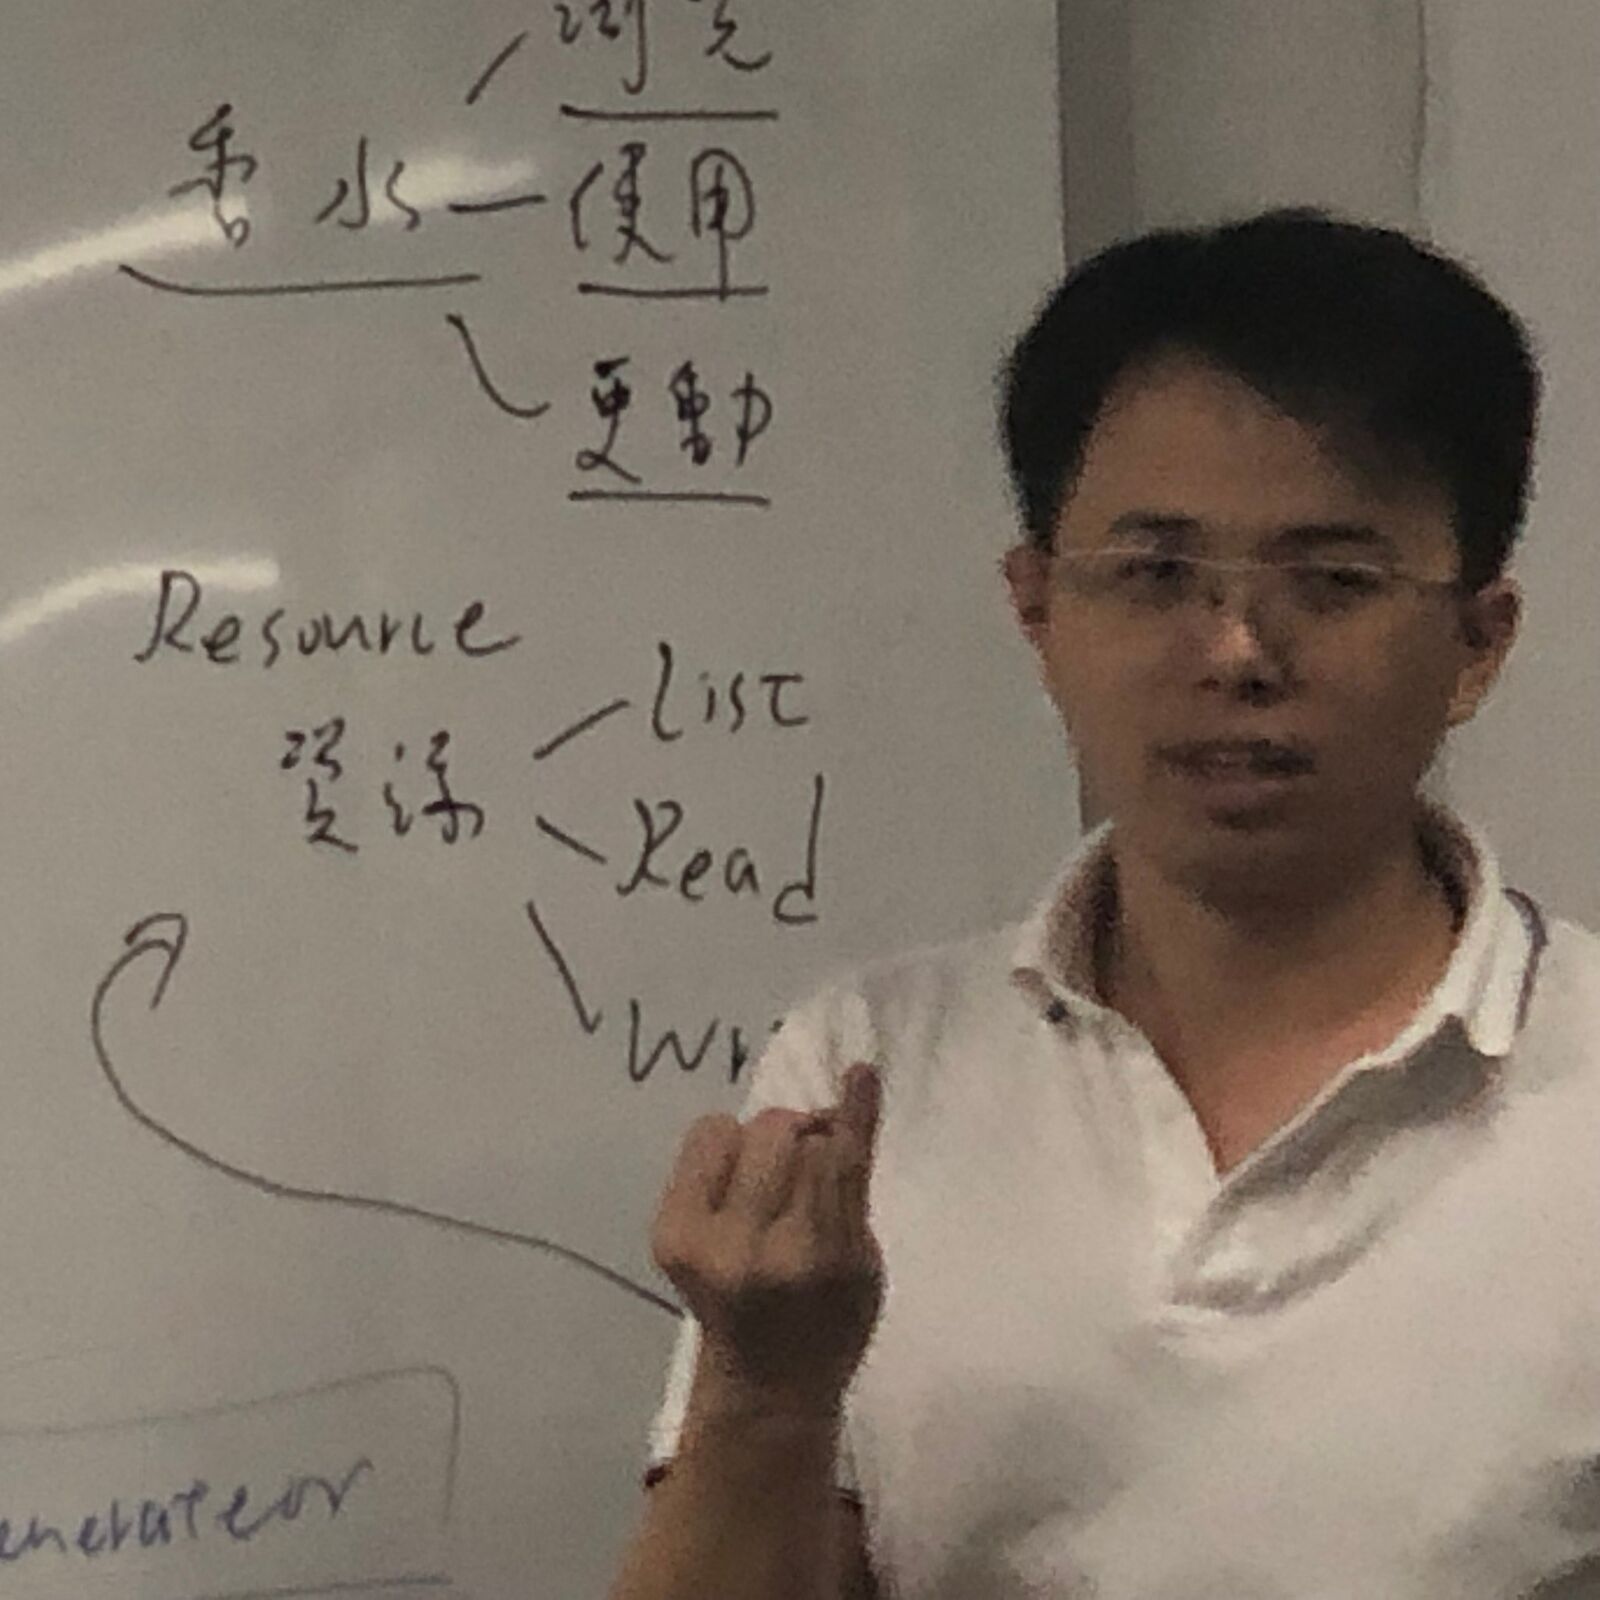 瀏覽
香水
使用
更動
Resource
資源
List
Read
Wri
enerateor